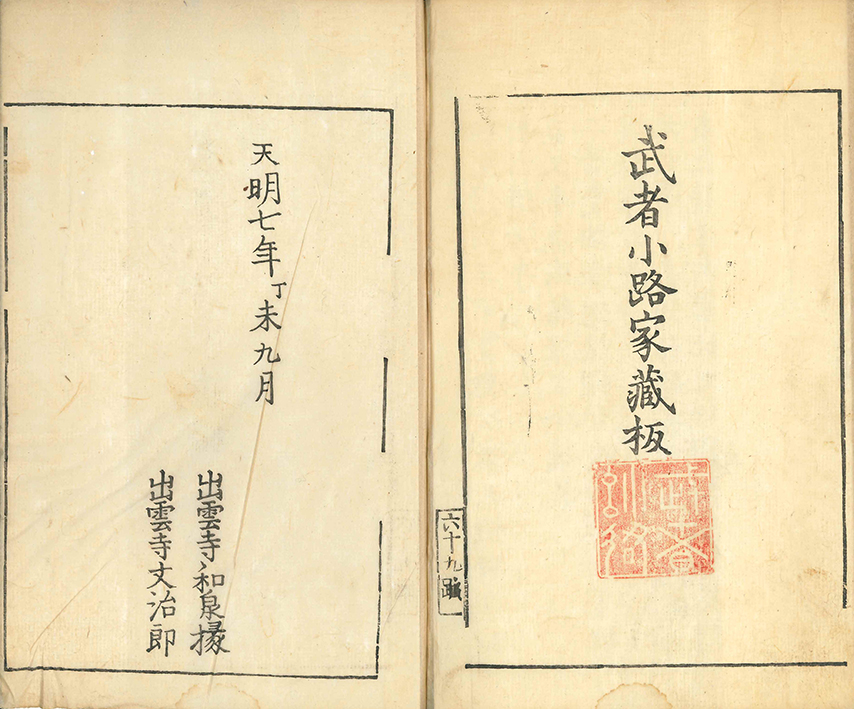 武者小路家藏板
六十九
天明七年丁未九月
出雲寺和泉掾
出雲寺文治郎